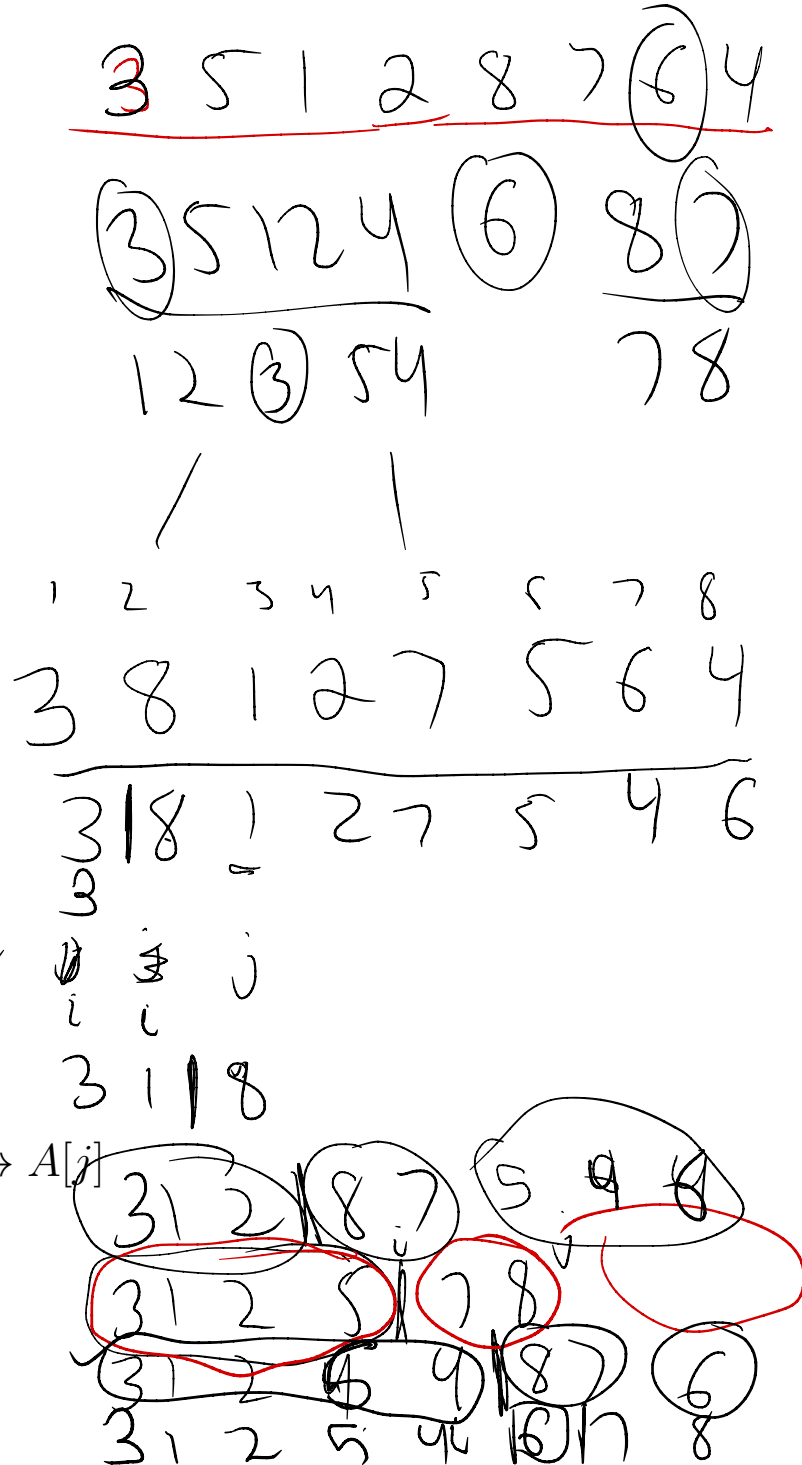 3 5 1 2 8 7 6 4
3 5 1 2 4 6 8 7
1 2 3 5 4 7 8
1 2 3 4 5 6 7 8
3 8 1 2 7 5 6 4
3 | 8 1 2 7 5 4 6
3
j
i i
3 1 | 8
→ A[j]
3 1 2 | 8 7 5 4 6
j
3 1 2 5 | 7 8
3 1 2 5 4 | 8 7 6
3 1 2 5 4 | 6 | 7 8